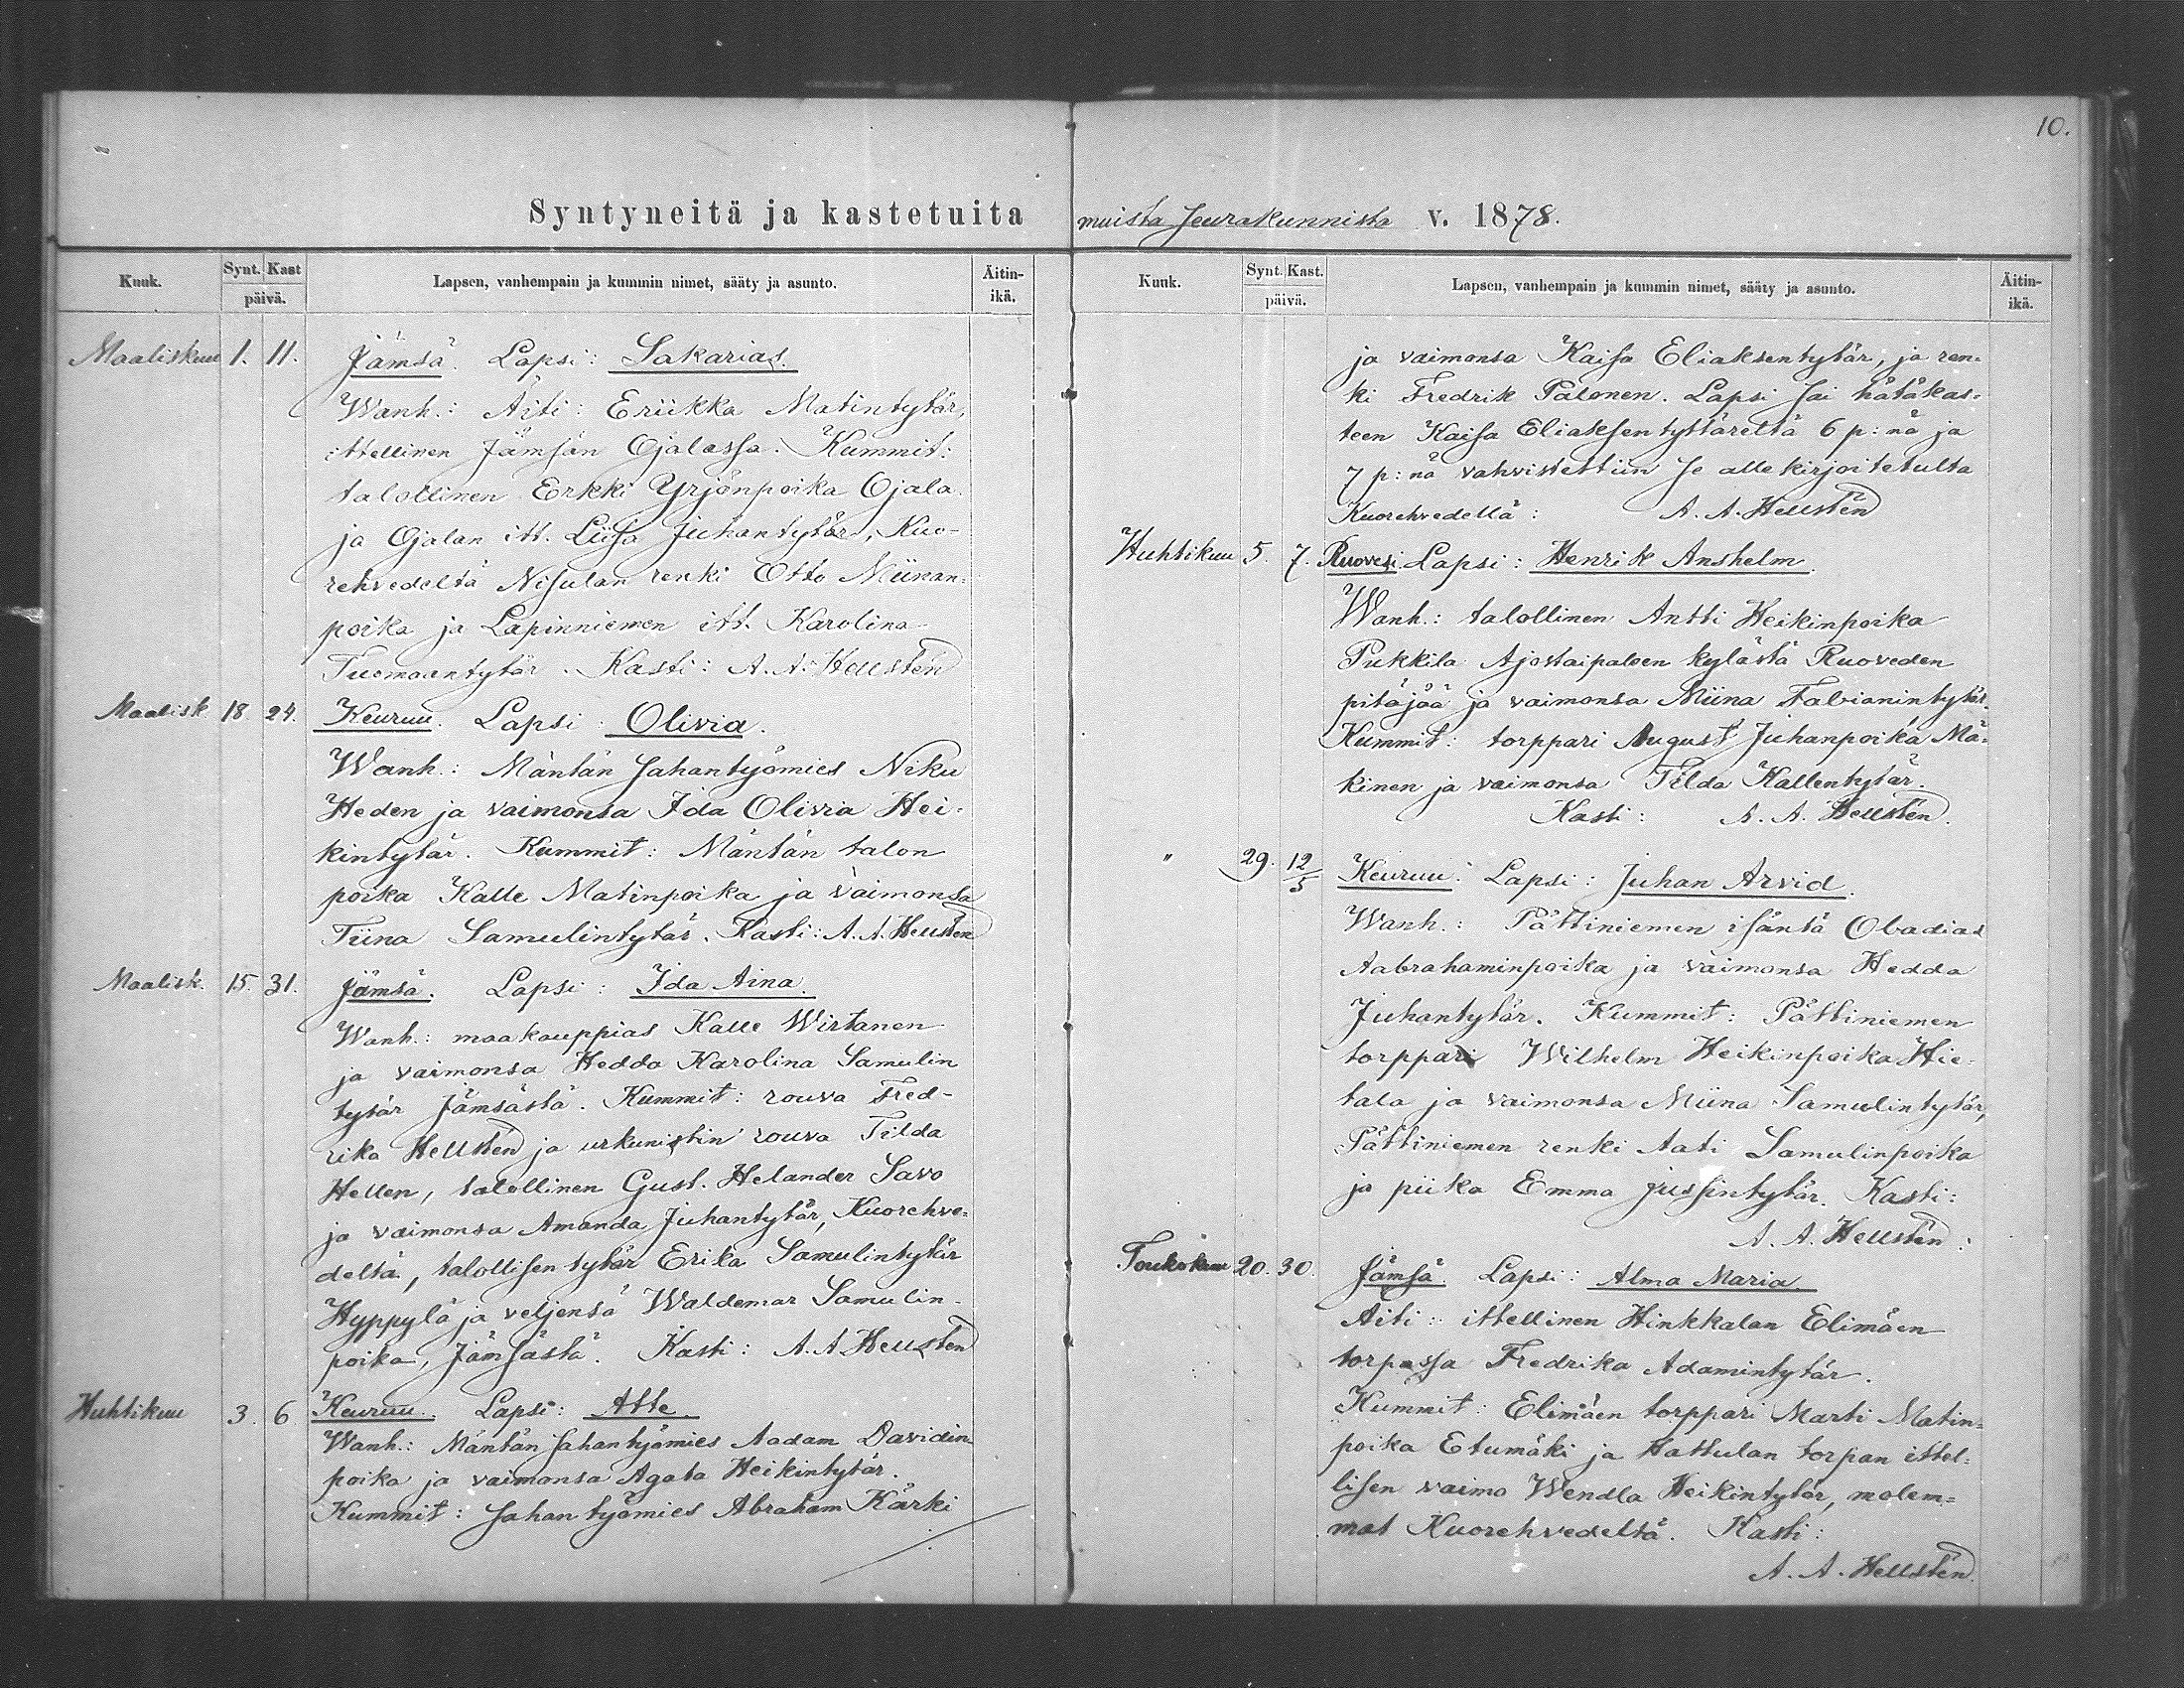 10.
Syntyneitä ja kastetuita muista seurakunnista v. 1878.
Kuuk. Synt. Kast päivä. Lapsen, vanhempain ja kummin nimet, sääty ja asunto. Äitin-ikä.
Maaliskuu 1. 11. Jämsä. Lapsi: Sakarias.
Wanh.: Äiti: Eriikka Matintytär,
ittellinen Jämsän Ojalassa. Kummit:
talollinen Erkki Yrjönpoika Ojala
ja Ojalan itt. Liisa Juhantytär, Kuo-
rehvedeltä Nisulan renki Otto Miinan-
poika ja Lapinniemen itt. Karolina
Tuomaantytär. Kasti: A. A. Hellstén
Maalisk 18 24. Keuruu. Lapsi: Olivia.
Wanh.: Mäntän sahantyömies Niku
Heden ja vaimonsa Ida Olivia Hei-
kintytär. Kummit: Mäntän talon
poika Kalle Matinpoika ja vaimonsa
Tiina Samulintytär. Kasti: A. A. Hellstén
Maalisk. 15. 31. Jämsä. Lapsi: Ida Aina.
Wanh.: maakauppias Kalle Wirtanen
ja vaimonsa Hedda Karolina Samulin
tytär Jämsästä. Kummit: rouva Fred-
rika Hellstén ja urkunistin rouva Tilda
Hellen, talollinen Gust. Helander Savo
ja vaimonsa Amanda Juhantytär, Kuorehve-
deltä, talollisen tytär Erika Samulintytär
Hyppylä ja veljensä Waldemar Samulin-
poika, Jämsästä. Kasti: A. A Hellstén
Huhtikuu 3. 6 Keuruu. Lapsi: Atte.
Wanh.: Mäntän sahantyömies Aadam Davidin
poika ja vaimonsa Agata Heikintytär.
Kummit: sahantyömies Abraham Kärki
Kuuk. Synt. Kast. päivä. Lapsen, vanhempain ja kummin nimet, sääty ja asunto. Äitin-ikä.
ja vaimonsa Kaisa Eliaksentytär, ja ren-
ki Fredrik Palonen. Lapsi sai hätäkas-
teen Kaisa Eliaksentyttäreltä 6 p:nä ja
7 p:nä vahvistettiin se allekirjoitetulta
Kuorehvedellä: A. A. Hellstén
Huhtikuu 5. 7. Ruovesi. Lapsi: Henrik Anshelm.
Wanh.: talollinen Antti Heikinpoika
Pukkila Ajostaipaleen kylästä Ruoveden
pitäjää ja vaimonsa Miina Fabianintytär.
Kummit: torppari August Juhanpoika Mä-
kinen ja vaimonsa Tilda Kallentytär.
Kasti: A. A. Hellstén.
" 29. 12/5 Keuruu. Lapsi: Juhan Arvid.
Wanh.: Pättiniemen isäntä Obadias
Aabrahaminpoika ja vaimonsa Hedda
Juhantytär. Kummit: Pättiniemen
torppari Wilhelm Heikinpoika Hie-
tala ja vaimonsa Miina Samulintytär,
Pättiniemen renki Aati Samulinpoika
ja piika Emma Jussintytär. Kasti:
A. A. Hellstén:
Toukokuu 20. 30. Jämsä. Lapsi: Alma Maria.
Äiti: ittellinen Hinkkalan Elimäen
torpassa Fredrika Adamintytär.
Kummit: Elimäen torppari Marti Matin-
poika Etumäki ja Hattulan torpan ittel-
lisen vaimo Wendla Heikintytär, molem-
mat Kuorehvedeltä. Kasti:
A. A. Hellstén.